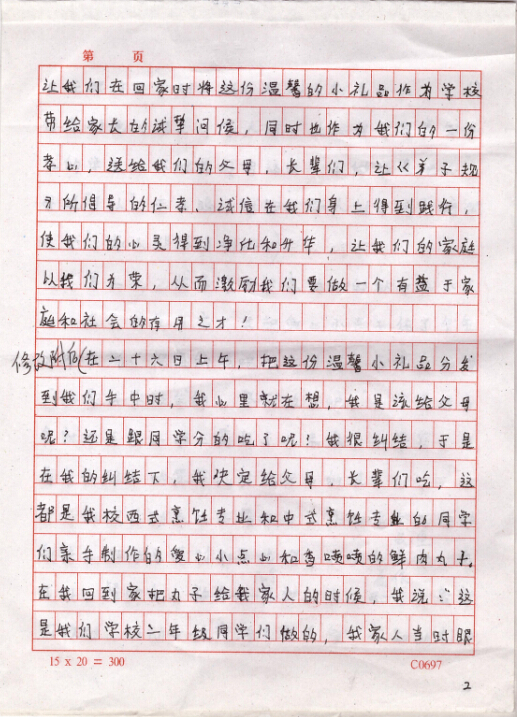 第 页
让我们在回家时将这份温馨的小礼品作为学校
带给家长的诚挚问候，同时也作为我们的一份
孝心，送给我们的父母，长辈们，让《弟子规
》所倡导的仁孝、诚信在我们身上得到践行，
使我们的心灵得到净化和升华，让我们的家庭
以我们为荣，从而激励我们要做一个有益于家
庭和社会的有用之才！
修改附后（在二十六日上午，把这份温馨小礼品分发
到我们手中时，我心里就在想，我是该给父母
呢？还是跟同学分的吃了呢！我很纠结，于是
在我的纠结下，我决定给父母，长辈们吃，这
都是我校西式烹饪专业和中式烹饪专业的同学
们亲手制作的爱心小点心和香喷喷的鲜肉丸子。
在我回到家把丸子给我家人的时候，我说：“这
是我们学校二年级同学们做的，我家人当时眼
15 x 20 = 300 C0697
2